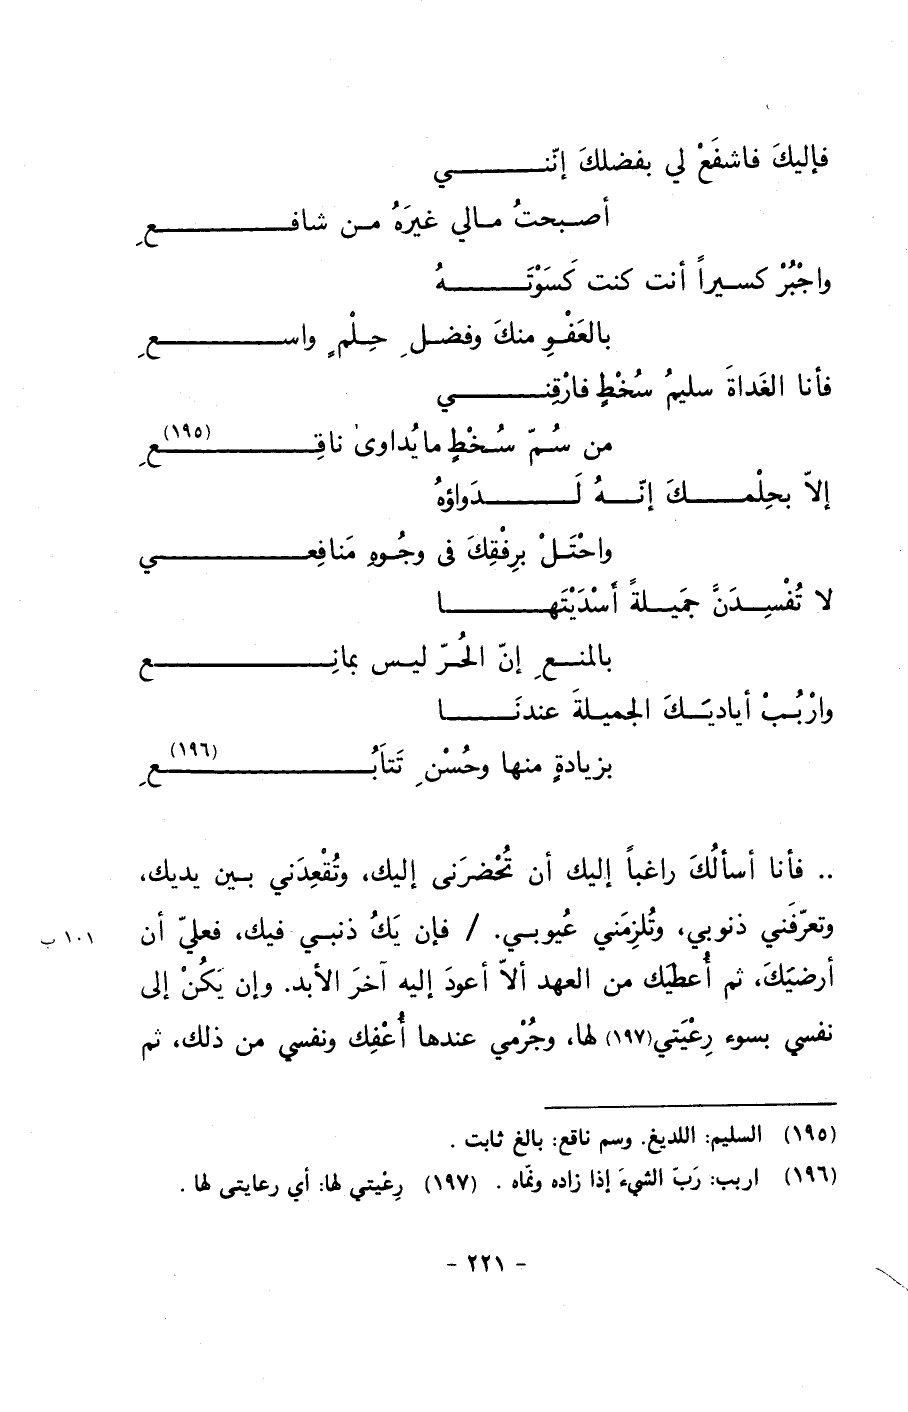 فإليكَ فاشفَعْ لي بفضلكَ إنّنـــــــي
أصـبحتُ مـالي غيرَهُ مـن شافـــــــعِ
واجْبُرْ كسـيراً أنت كنت كَسَوْتَـــــــهُ
بالعَفْـوِ منكَ وفضـلِ حِـلْمٍ واســـــــعِ
فأنا الغَداةَ سليمُ سُخْطٍ فارْقِنـــــــي
من سُـمّ سُـخْطٍ ما يُداوىٰ ناقِـــــــعِ (١٩٥)
إلاّ بحِلْمـــــكَ إنّـــهُ لَـــــدَواؤهُ
واحْتَـلْ برِفْقِكَ فى وجُـوهِ مَنافِعـــــــي
لا تُفْسِـدَنَّ جَمَيـلةً أَسْدَيْتَهـــــــا
بالمنـعِ إنّ الحُـرّ ليـس بمانِـــــــع
وارْبُـبْ أياديَـكَ الجميـلةَ عندنَـــــــا
بزيادةٍ منها وحُسْنِ تَتاَبُـــــــعِ (١٩٦)
.. فأنا أسألُكَ راغباً إليك أن تُحْضرَنى إليك، وتُقْعِدَني بـين يديك،
وتعرّفَني ذنوبي، وتُلزِمَني عُيوبـي. / فإن يَكُ ذنبـي فيك، فعليّ أن
١٠١ ب
أرضيَكَ، ثم أُعطيَك من العهد ألاّ أعودَ إليه آخرَ الأبد. وإن يَكُنْ إلى
نفسي بسوء رِعْيَتي(١٩٧) لها، وجُرْمي عندها أُعْفِك ونفسي من ذلك، ثم
(١٩٥) السليم: اللديغ. وسم ناقع: بالغ ثابت .
(١٩٦) اربب: رَبّ الشيءَ إذا زاده ونمّاه . (١٩٧) رِعْيتي لها: أي رعايتى لها .
- ٢٢١ -